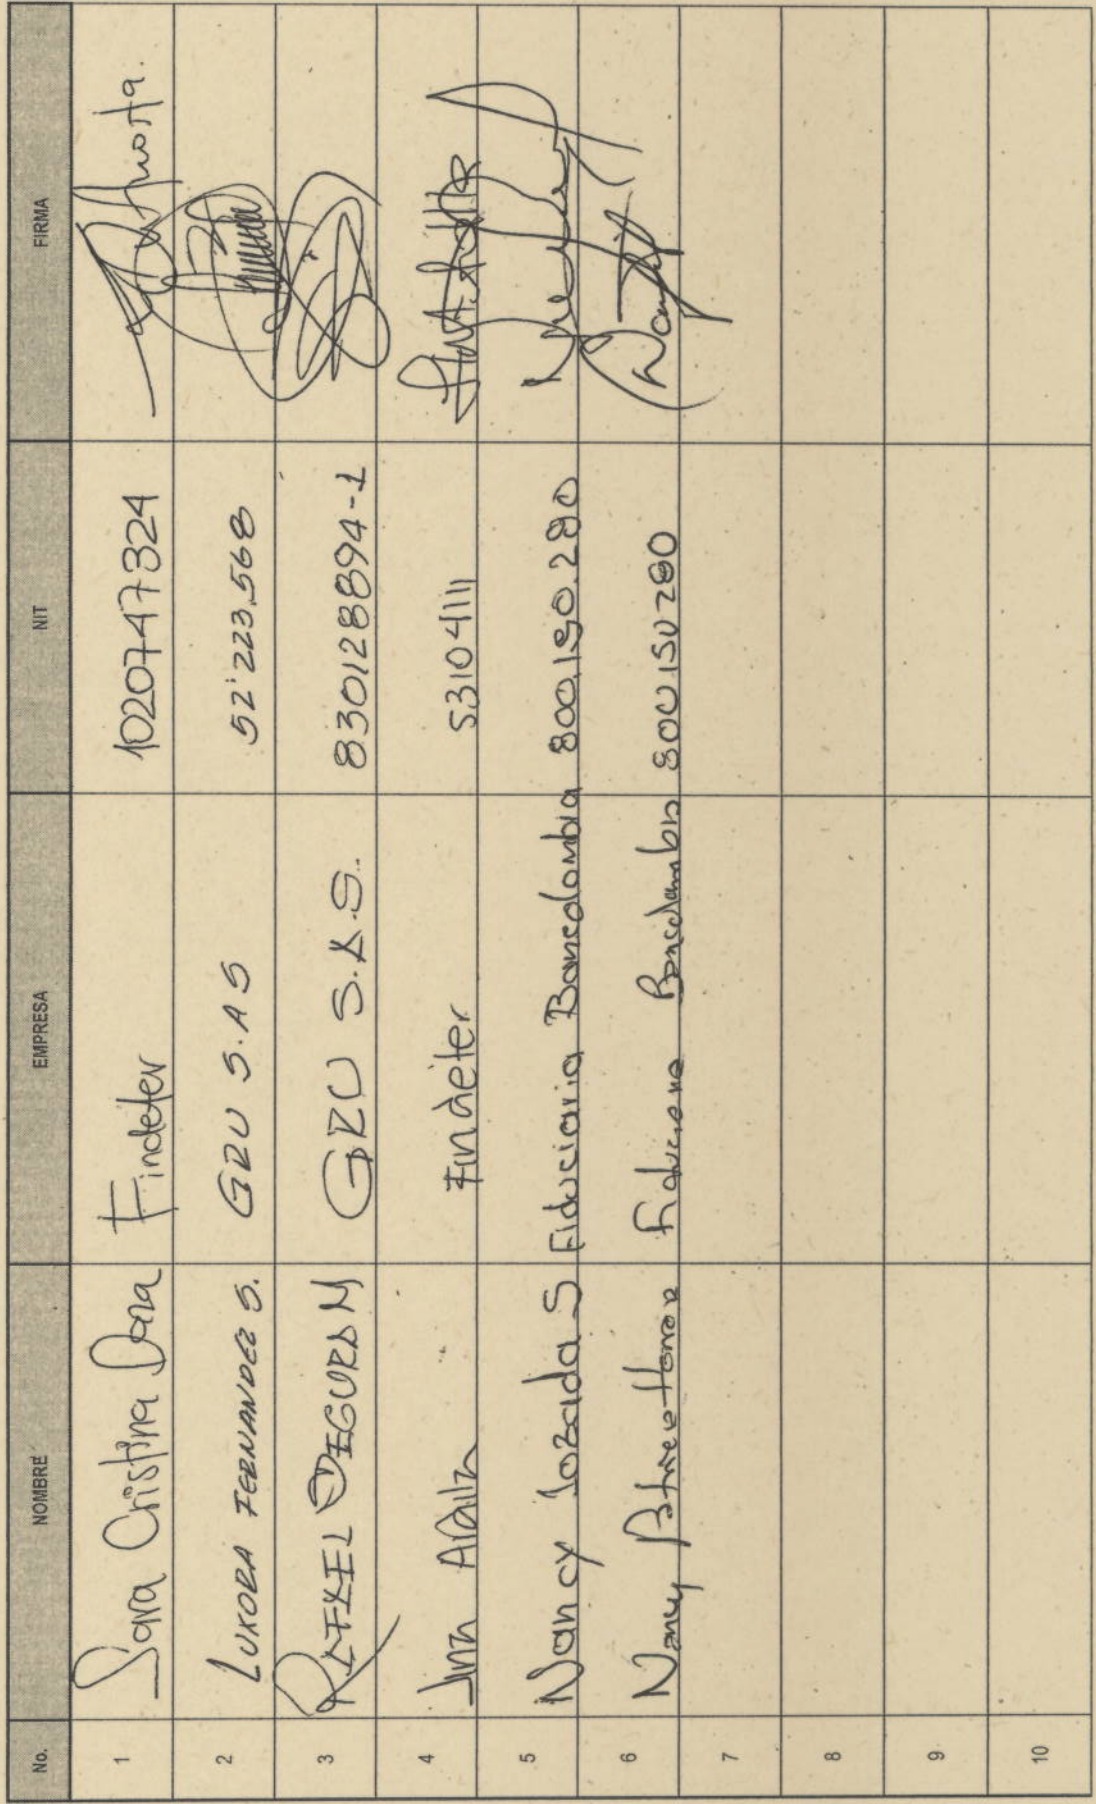 No. NOMBRE EMPRESA NIT FIRMA
1 Sara Cristina Daza Findeter 1020747324
2 FERNANDEZ S. GRU S.A S 52'223.568
3 GRU S.A.S. 830128894-1
4 Findeter 53104111
5 Nancy Lozada S Fiduciaria Bancolombia 800.150.280
6 Nancy Fiduciaria Bancolombia 800150280
7
8
9
10